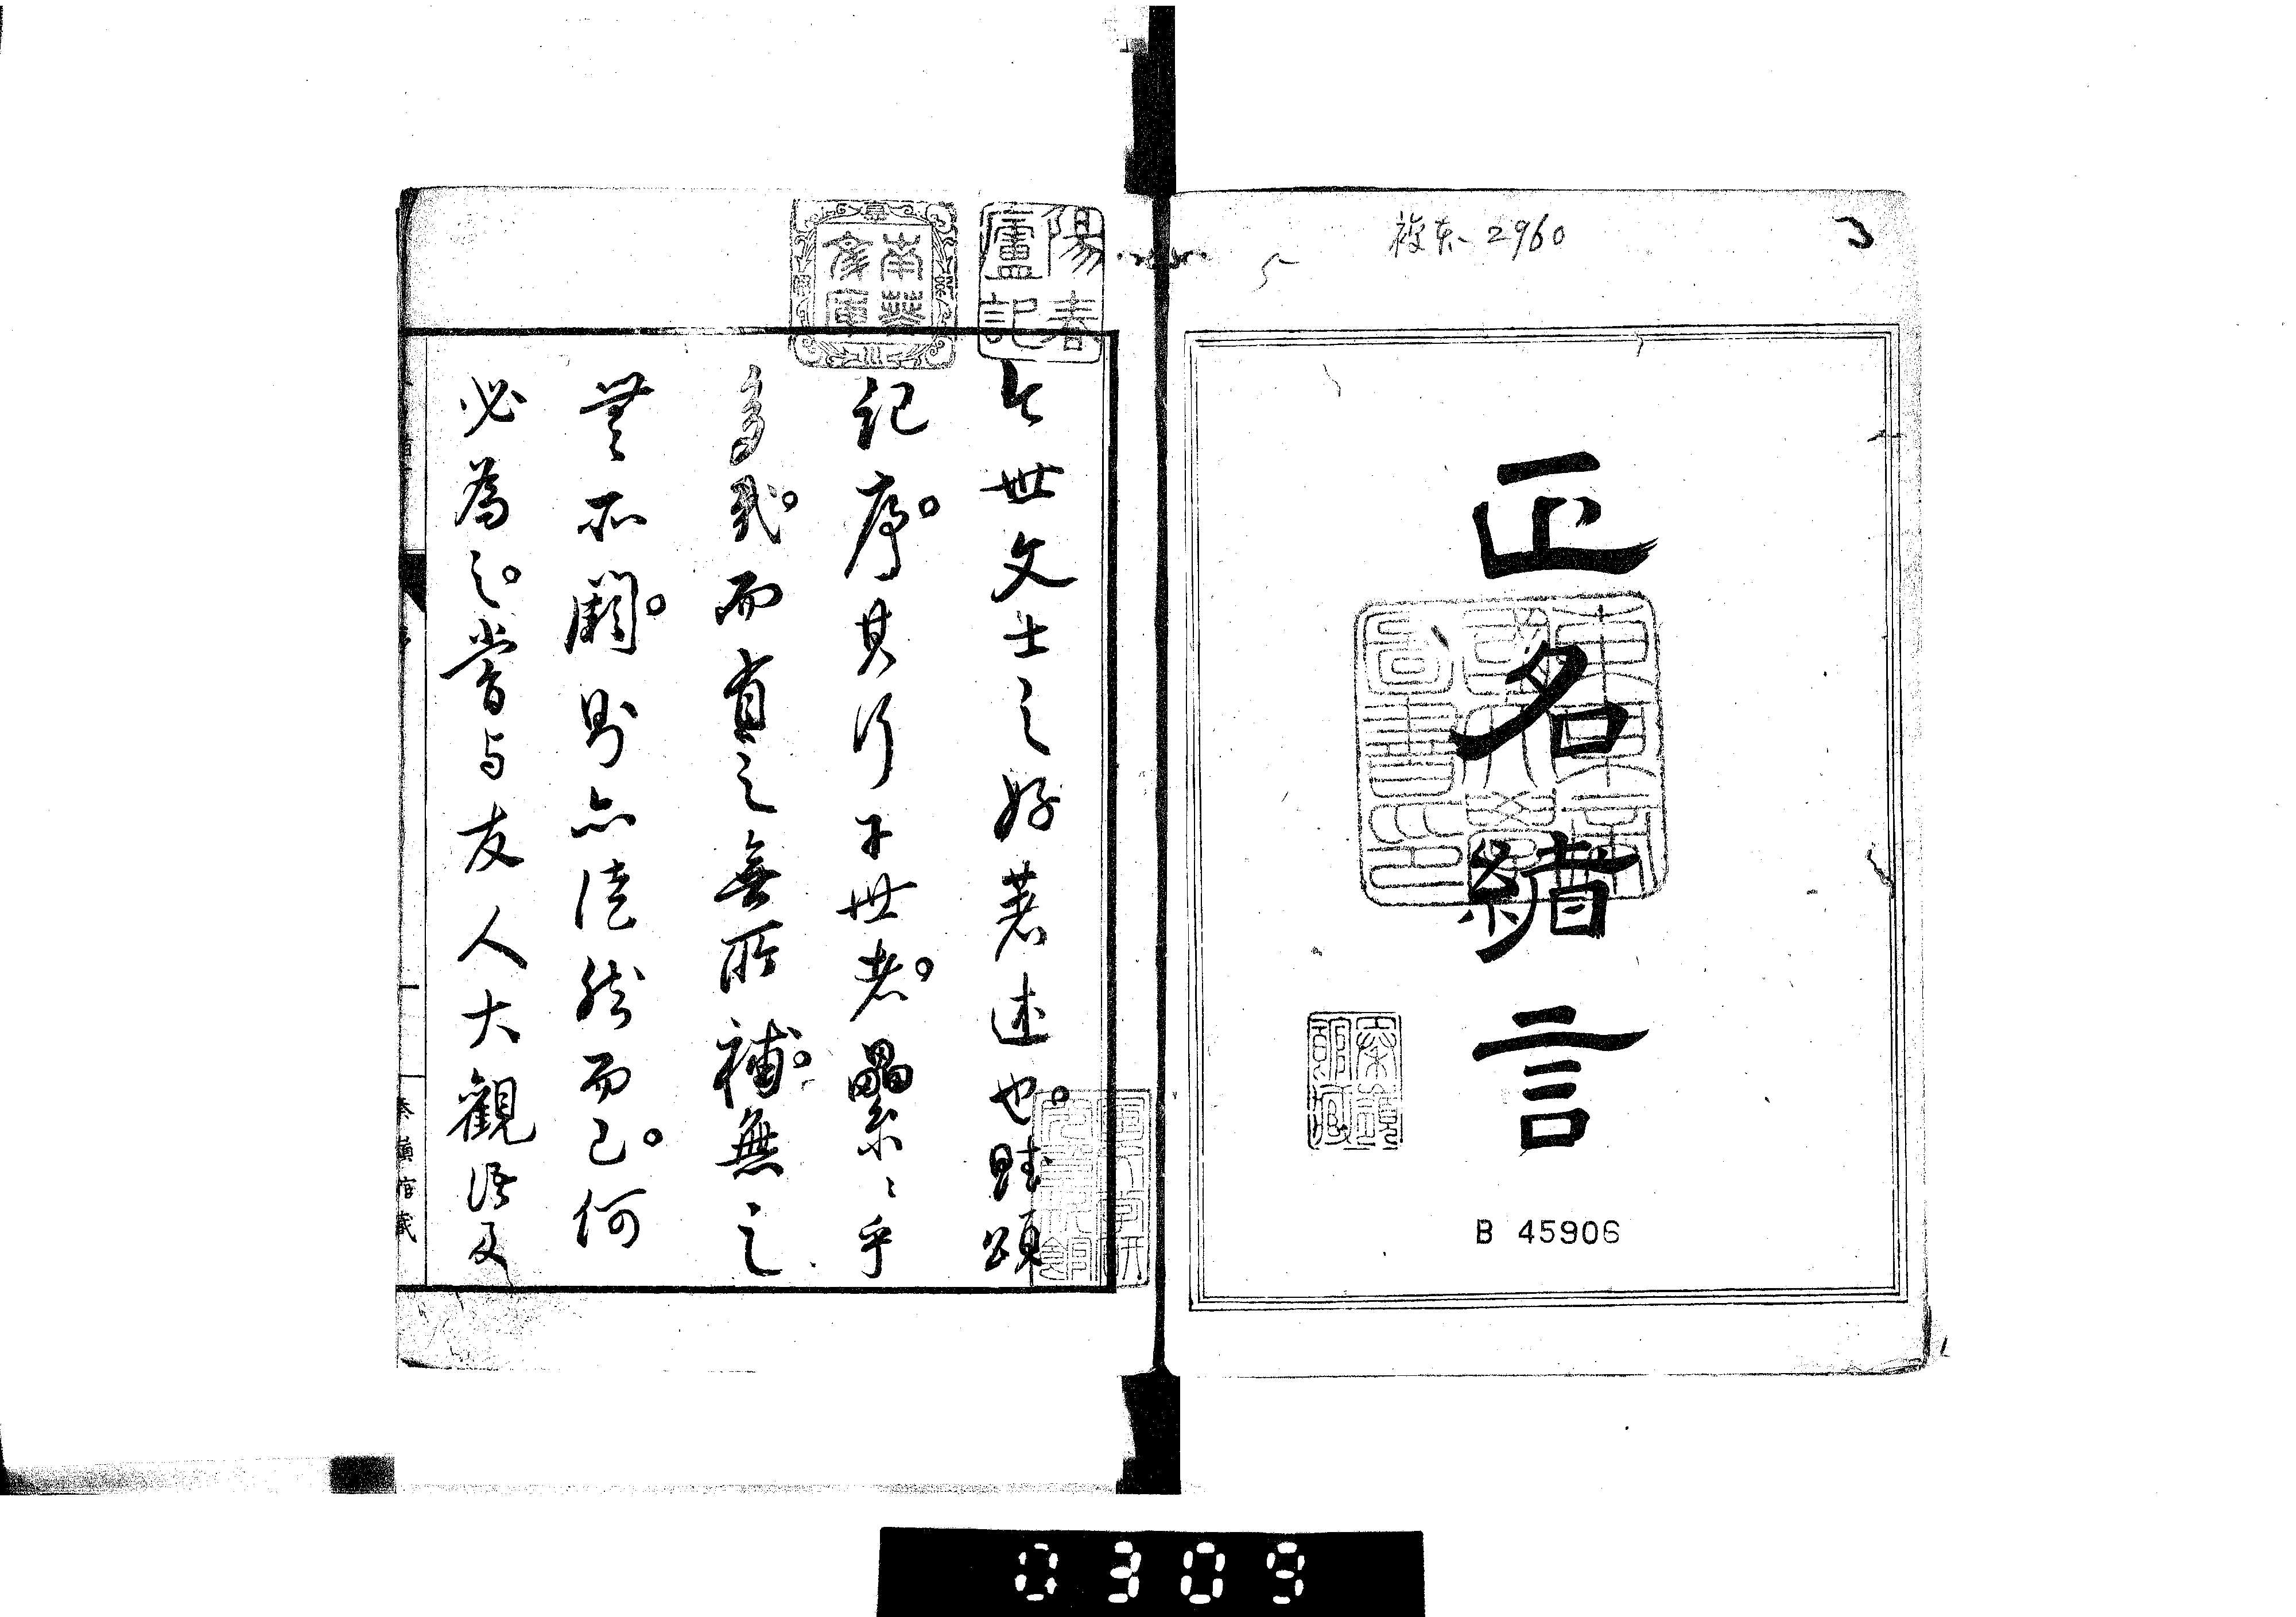 複東 2960
正名緒言
B 45906
陽春廬記
南葵文庫
今世文士之好著述也。賦頌
記序。其行于世者。纍々乎
多哉。而有之無所補。無之
無所闕。則亦徒然而已。何
必為之。嘗与友人大觀語及
0309